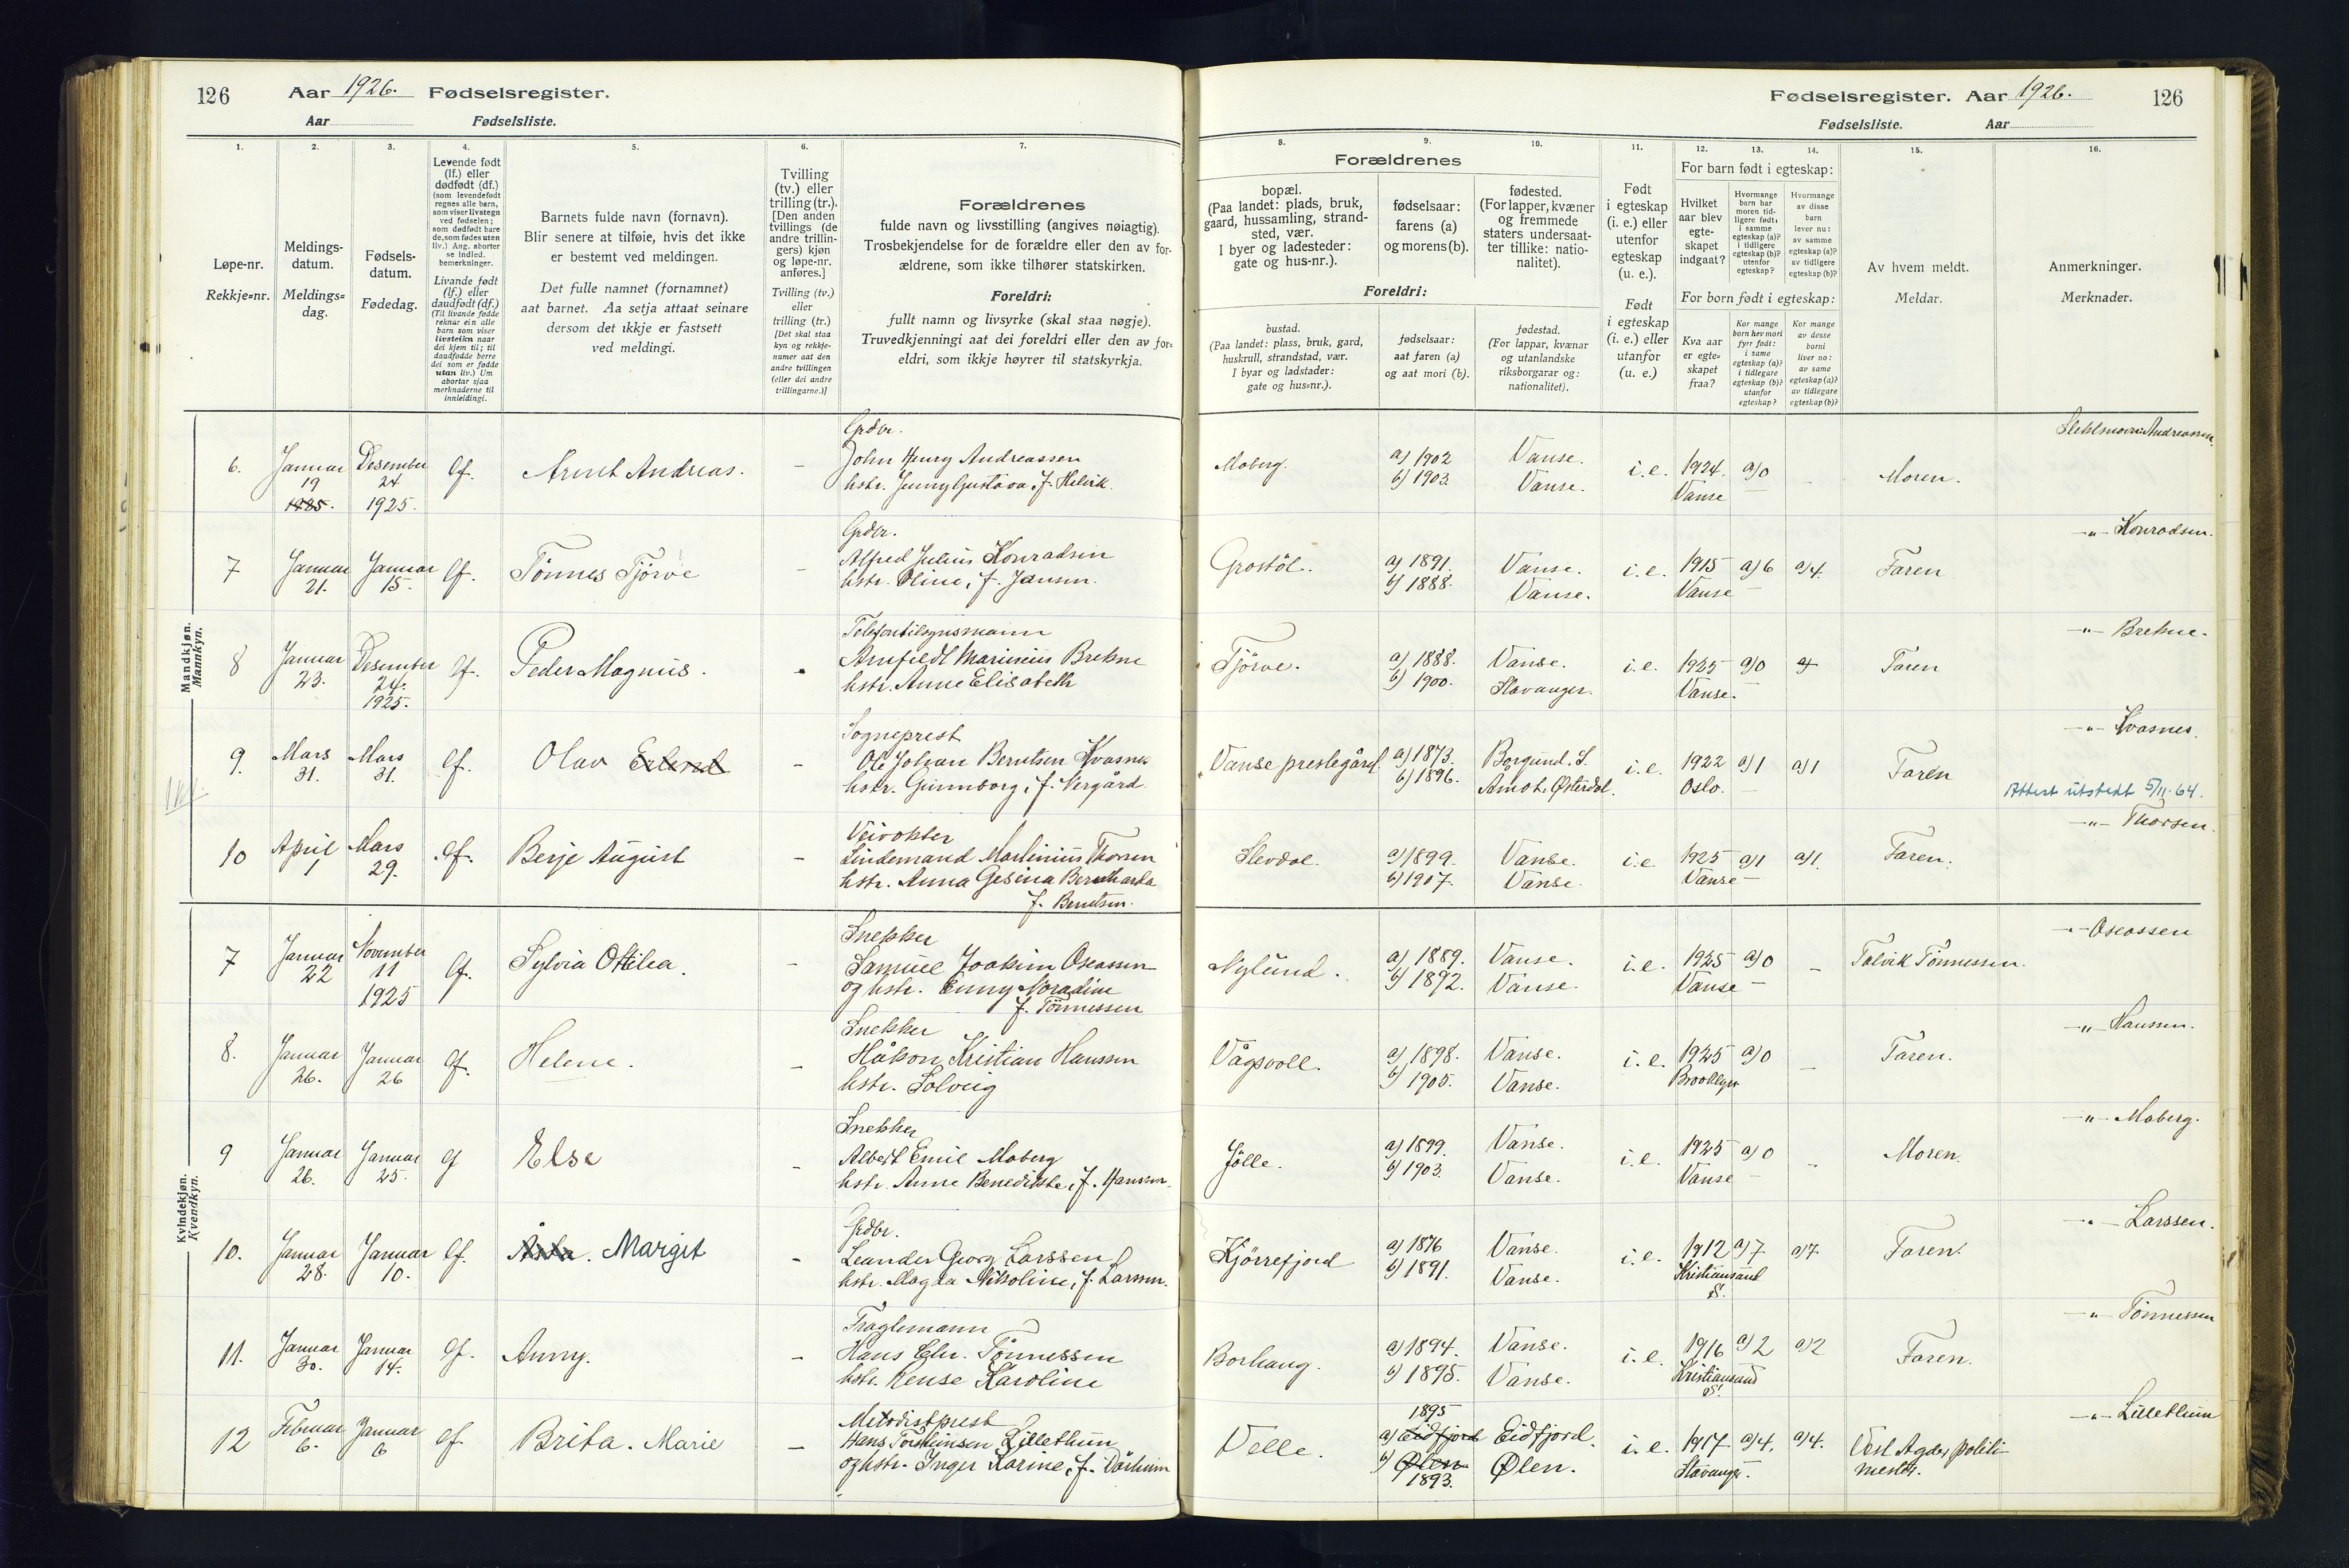 126 Aar 1926. Fødselsregister.
Aar Fødselsliste.
1. 2. 3. 4. 5. 6. 7.
Løpe-nr.
Rekkje=nr.
Meldings-
datum.
Meldings=
dag.
Fødsels-
datum.
Fødedag.
Levende født
(lf.) eller
dødfødt (df.)
(som levendefødt
regnes alle barn,
som viser livstegn
ved fødselen;
som dødfødt bare
de, som fødes uten
liv.) Ang. aborter
se indled.
bemerkninger.
Livande født
(lf.) eller
daudfødt (df.)
(Til livande fødde
reknar ein alle
barn som viser
livsteikn naar
dei kjem til; til
daudfødde berre
dei som er fødde
utan liv.) Um
abortar sjaa
merknaderne til
innleidingi.
Barnets fulde navn (fornavn).
Blir senere at tilføie, hvis det ikke
er bestemt ved meldingen.
Det fulle namnet (fornamnet)
aat barnet. Aa setja attaat seinare
dersom det ikkje er fastsett
ved meldingi.
Tvilling
(tv.) eller
trilling (tr.).
[Den anden
tvillings (de
andre trillin-
gers) kjøn
og løpe-nr.
anføres.]
Tvilling (tv.)
eller
trilling (tr.)
[Det skal staa
kyn og rekkje-
numer aat den
andre tvillingen
(eller dei andre
trillingarne.)]
Forældrenes
fulde navn og livsstilling (angives nøiagtig).
Trosbekjendelse for de forældre eller den av for-
ældrene, som ikke tilhører statskirken.
Foreldri:
fullt namn og livsyrke (skal staa nøgje).
Truvedkjenningi aat dei foreldri eller den av for=
eldri, som ikkje høyrer til statskyrkja.
Mandkjøn.
Mannkyn.
Grdbr.
6. Januar Desember lf. Arent Andreas. - John Henry Andreassen
19 24 hstr. Jenny Gustava, f. Helvik.
1925. 1925.
Grdbr.
7 Januar Januar lf. Tönnes Tjörve - Alfred Julius Konradsen
21. 15. hstr. Oline, f. Jansen.
Telefontilsynsmann
8 Januar Desember lf. Peder Magnus. - Arnfeldt Marinius Brekne
23. 24. hstr. Anne Elisabeth
1925.
Sogneprest
9. Mars Mars lf. Olav Erlend - Ole Johan Berntsen Kvasnes
31. 31. hstr. Gunnborg, f. Vergård.
Veivokter
10 April Mars lf. Berje August - Lindemand Martinius Thorsen
1 29. hstr. Anna Gesina Bernharda
f. Berntsen.
Kvindekjøn.
Kvendkyn.
Snekker
7 Januar November lf. Sylvia Ottilea. - Samuel Joakim Oseassen
22 11 og hstr. Enny Noradine
1925 f. Tönnessen
Snekker
8. Januar Januar lf. Helene. - Håkon Kristian Hanssen
26. 26 hstr. Solveig
Snekker
9 Januar Januar lf Else - Albert Emil Moberg
26. 25. hstr. Anne Benedikte, f. Hanssen.
Grdbr.
10. Januar Januar lf. Åsta. Margit - Leander Georg Larssen
28. 10. hstr. Magda Nikoline, f. Larssen.
11. Januar Januar lf. Anny. - Hans Chr. Tönnessen
30. 14. hstr. Karoline
Metodistprest
12 Februar Januar lf. Brita. Marie - Hans Torsteinsen Lillethun
6. 6 og hstr. Inger Karine, f.
Fødselsregister. Aar 1926. 126
Fødselsliste. Aar
8. 9. 10. 11. 12. 13. 14. 15. 16.
Forældrenes
bopæl.
(Paa landet: plads, bruk,
gaard, hussamling, strand-
sted, vær.
I byer og ladesteder:
gate og hus-nr.).
fødselsaar:
farens (a)
og morens (b).
fødested.
(For lapper, kvæner
og fremmede
staters undersaat-
ter tillike: natio-
nalitet).
Foreldri:
bustad.
(Paa landet: plass, bruk, gard,
huskrull, strandstad, vær.
I byar og ladstader:
gate og hus=nr.).
fødselsaar:
aat faren (a)
og aat mori (b).
fødestad.
(For lappar, kvænar
og utanlandske
riksborgarar og:
nationalitet).
Født
i egteskap
(i. e.) eller
utenfor
egteskap
(u. e.).
Født
i egteskap
(i. e.) eller
utanfor
(u. e.)
For barn født i egteskap:
Hvilket
aar blev
egte-
skapet
indgaat?
Hvormange
barn har
moren tid-
ligere født:
i samme
egteskap (a)?
i tidligere
egteskap (b)?
utenfor
egteskap?
Hvormange
av disse
barn
lever nu:
av samme
egteskap (a)?
av tidligere
egteskap (b)?
For born født i egteskap:
Kva aar
er egte=
skapet
fraa?
Kor mange
born hev mori
fyrr født:
i same
egteskap (a)?
i tidlegare
egteskap (b)?
utanfor
egteskap?
Kor mange
av desse
borni
liver no:
av same
egteskap (a)?
av tidlegare
egteskap (b)?
Av hvem meldt.
Meldar.
Anmerkninger.
Merknader.
Slektsnavn: Andreassen.
Moberg. a) 1902 Vanse. i.e. 1924. a) 0 - Moren.
b) 1903. Vanse. Vanse -
-"- Konradsen.
Grostöl. a) 1891. Vanse. i.e. 1915 a) 6 a) 4. Faren
b) 1888. Vanse. Vanse -
-"- Brekne.
Tjörve. a) 1888. Vanse. i.e. 1925 a) 0 Faren
b) 1900. Stavanger. Vanse. -
-"- Kvasnes.
Vanse prestegård. a) 1873. Borgund. S. i.e. 1922 a) 1 a) 1 Faren
b) 1896. Åmot. Østerdal. Oslo. -
Attest utstedt 5/11-64.
-"- Thorsen.
Slevdal. a) 1899. Vanse. i.e. 1925 a) 1 a) 1. Faren.
b) 1907. Vanse. Vanse -
-"- Oseassen
Nylund. a) 1889. Vanse. i.e. 1925 a) 0 - Talvik Tönnessen.
b) 1892. Vanse. Vanse -
-"- Hanssen.
Vågsvoll. a) 1898. Vanse. i.e. 1925 a) 0 - Faren.
b) 1905. Vanse. Brooklyn
-"- Moberg.
Jölle. a) 1899. Vanse. i.e. 1925 a) 0 - Moren.
b) 1903. Vanse. Vanse -
-"- Larssen.
Kjörrefjord a) 1876 Vanse. i.e. 1912 a) 7 a) 7. Faren.
b) 1891. Vanse. Kristiansand
S.
-"- Tönnessen
Borhaug. a) 1894. Vanse. i.e. 1916 a) 2 a) 2 Faren.
b) 1895. Vanse. Kristiansand
S.
-"- Lillethun
1895
Velle. a) Eidfjord Eidfjord. i.e. 1917. a) 4. a) 4. Vest Agder politi-
b) Ølen Ølen. Stavanger. - mester.
1893.